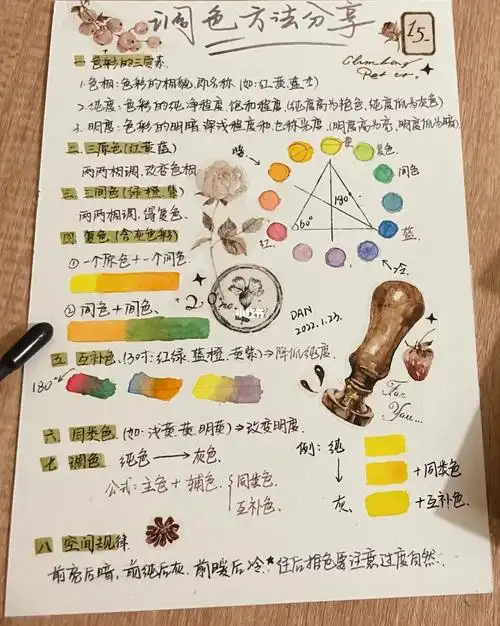 调色方法分享
15
Climbing
Pet er.
一 色彩的三要素
1.色相:色彩的相貌,即名称(如:红黄蓝)
2.纯度:色彩的纯净程度,饱和程度(纯度高为艳色,纯度低为灰色)
3.明度:色彩的明暗深浅程度和也称光度.(明度高为亮,明度低为暗)
二 三原色(红黄蓝)
两两相调,改变色相
三 三间色(绿橙紫)
两两相调,得复色.
四 复色(含灰色彩)
①一个原色+一个间色.
②间色+间色、
暖.
黄
复色.
间色
蓝
冷.
红
180°
60°
小红书
DAN
2022.1.23.
五 互补色,(3对:红绿,蓝橙,黄紫)→降低纯度.
180°
六 同类色(如:浅黄.黄.明黄)→改变明度.
七 调色 纯色→灰色.
公式:主色+辅色.
同类色.
互补色.
For
You...
例:纯
↓
+同类色
灰
+互补色.
八 空间规律
前亮后暗,前纯后灰,前暖后冷.*往后相色要注意过度自然.